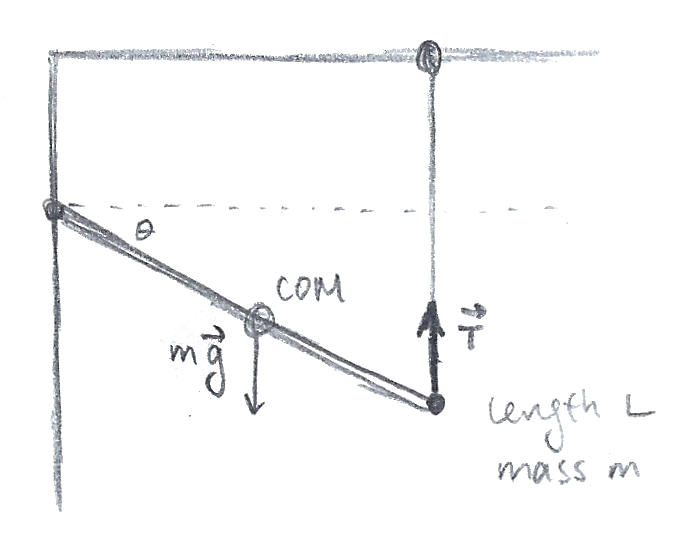 θ
COM
mg⃗
T⃗
length L
mass m